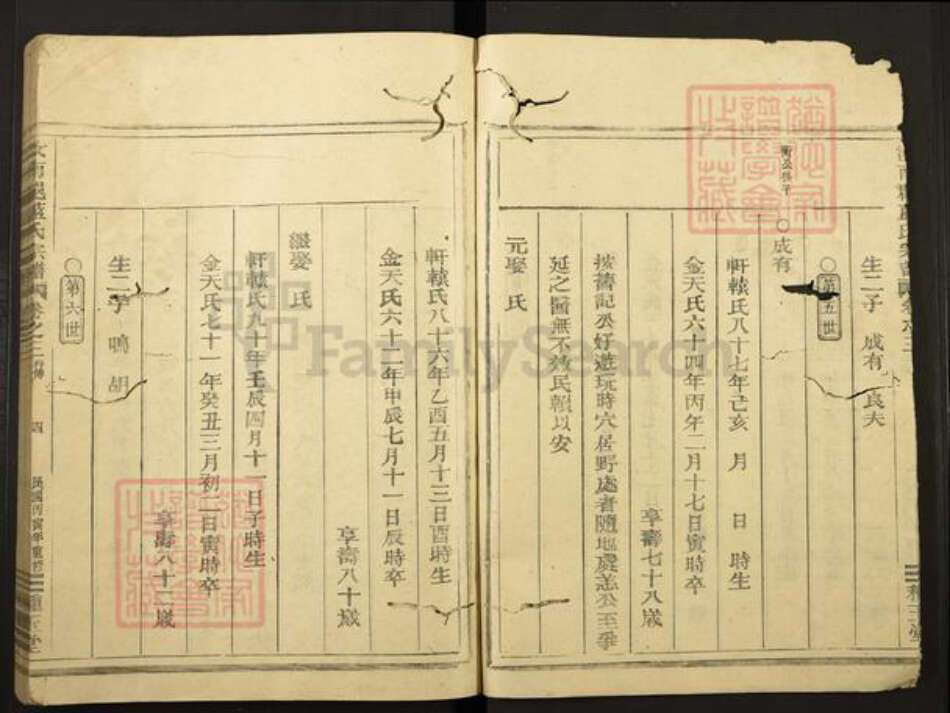 生二子 成有 良夫
○第五世
○成有
軒轅氏八十七年己亥 月 日 時生
金天氏六十四年丙午二月十七日寅時卒
享壽七十八歲
按舊記公好遊玩時穴居野處者隨地
延之醫無不效民賴以安
元娶 氏
軒轅氏八十六年乙酉五月十三日酉時生
金天氏六十二年甲辰七月十一日辰時卒
享壽八十歲
繼娶 氏
軒轅氏九十年壬辰四月十一日子時生
金天氏七十一年癸丑三月初二日寅時卒
享壽八十二歲
生二子 鳴 胡
○第六世
氏宗譜 卷之三 四 民國丙寅年重修
FamilySearch